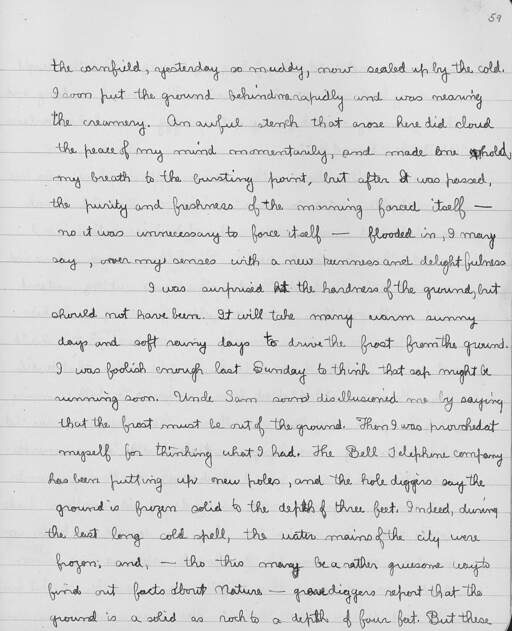 59
the cornfield, yesterday so muddy, now sealed up by the cold.
I soon put the ground behind me rapidly and was nearing
the creamery. An awful stench that arose here did cloud
the peace of my mind momentarily, and made me hold
my breath to the bursting point, but after it was passed,
the purity and freshness of the morning forced itself —
no it was unnecessary to force itself — flooded in, I may
say, over my senses with a new keenness and delightfulness
I was surprised at the hardness of the ground, but
should not have been. It will take many warm sunny
days and soft rainy days to drive the frost from the ground.
I was foolish enough last Sunday to think that sap might be
running soon. Uncle Sam soon disillusioned me by saying
that the frost must be out of the ground. Then I was provoked at
myself for thinking what I had. The Bell Telephone company
has been putting up new poles, and the hole diggers say the
ground is frozen solid to the depth of three feet. Indeed, during
the last long cold spell, the water mains of the city were
frozen; and, — tho this may be a rather gruesome way to
find out facts about Nature — gravediggers report that the
ground is a solid as rock to a depth of four feet. But these